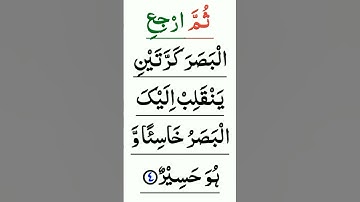 ثُمَّ ارْجِعِ
الْبَصَرَ كَرَّتَيْنِ
يَنْقَلِبْ اِلَيْكَ
الْبَصَرُ خَاسِئًا وَّ
هُوَ حَسِيْرٌ ﴿٤﴾